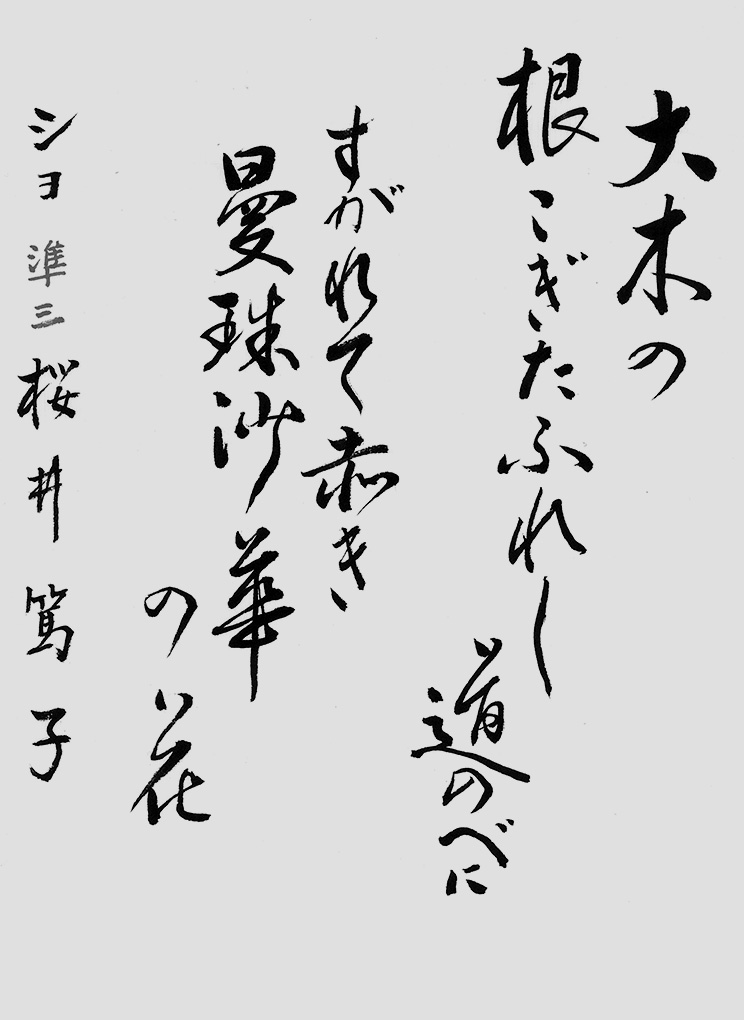 大木の
根こぎたふれし
道のべに
すがれて赤き
曼珠沙華
の花
ショ 準三 桜井篤子